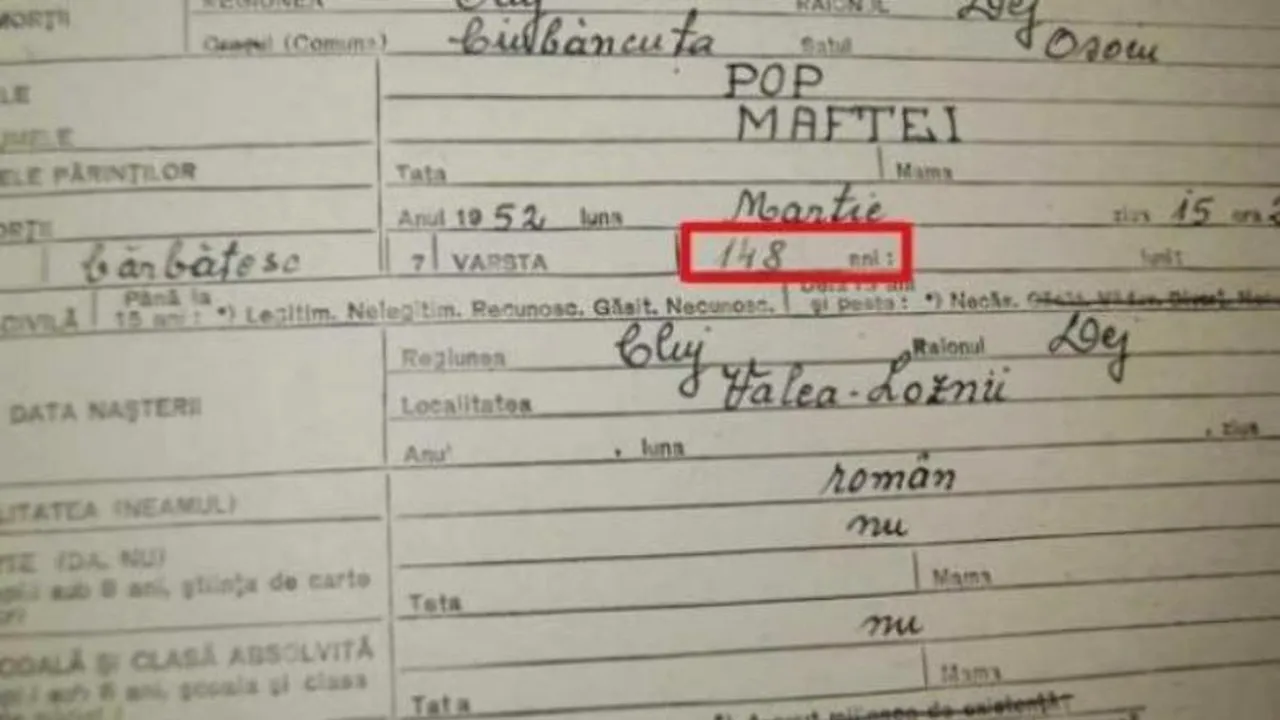 MORȚII REGIUNEA Cluj RAIONUL Dej
Orașul (Comuna) Ciubăncuța Satul Osoiu
POP
MAFTEI
ELE PĂRINȚILOR Tata Mama
Anul 1952 luna Martie ziua 15 ora
bărbătesc 7 VARSTA 148 ani: luni:
CIVILĂ Până la 15 ani: *) Legitim. Nelegitim. Recunosc. Găsit. Necunosc. și peste: *) Necăs.
Regiunea Cluj Raionul Dej
DATA NAȘTERII Localitatea Valea-Loznii
Anul , luna , ziua
LITATEA (NEAMUL) român
TE (DA, NU) nu
sub 8 ani, știința de carte Tata Mama
COALĂ ȘI CLASĂ ABSOLVITĂ nu
sub 8 ani, școala și clasa Tata Mama
mijloace de existență